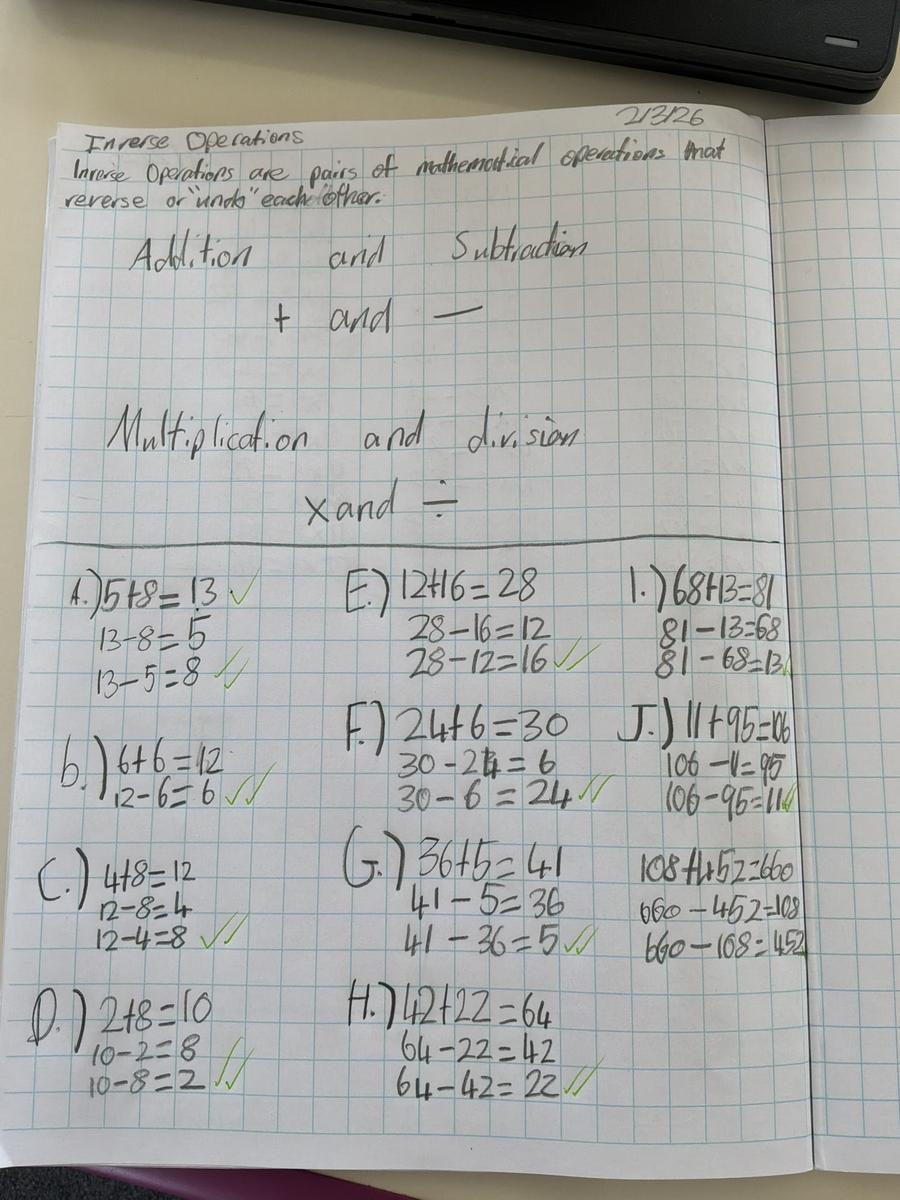 2/3/26
Inverse Operations
Inverse Operations are pairs of mathematical operations that
reverse or "undo" each other.
Addition and Subtraction
+ and —
Multiplication and division
x and ÷
A.) 5+8=13
13-8=5
13-5=8
b.) 6+6=12
12-6=6
C.) 4+8=12
12-8=4
12-4=8
D.) 2+8=10
10-2=8
10-8=2
E.) 12+16=28
28-16=12
28-12=16
F.) 24+6=30
30-24=6
30-6=24
G.) 36+5=41
41-5=36
41-36=5
H.) 42+22=64
64-22=42
64-42=22
I.) 68+13=81
81-13=68
81-68=13
J.) 11+95=106
106-11=95
106-95=11
108+452=660
660-452=108
660-108=452